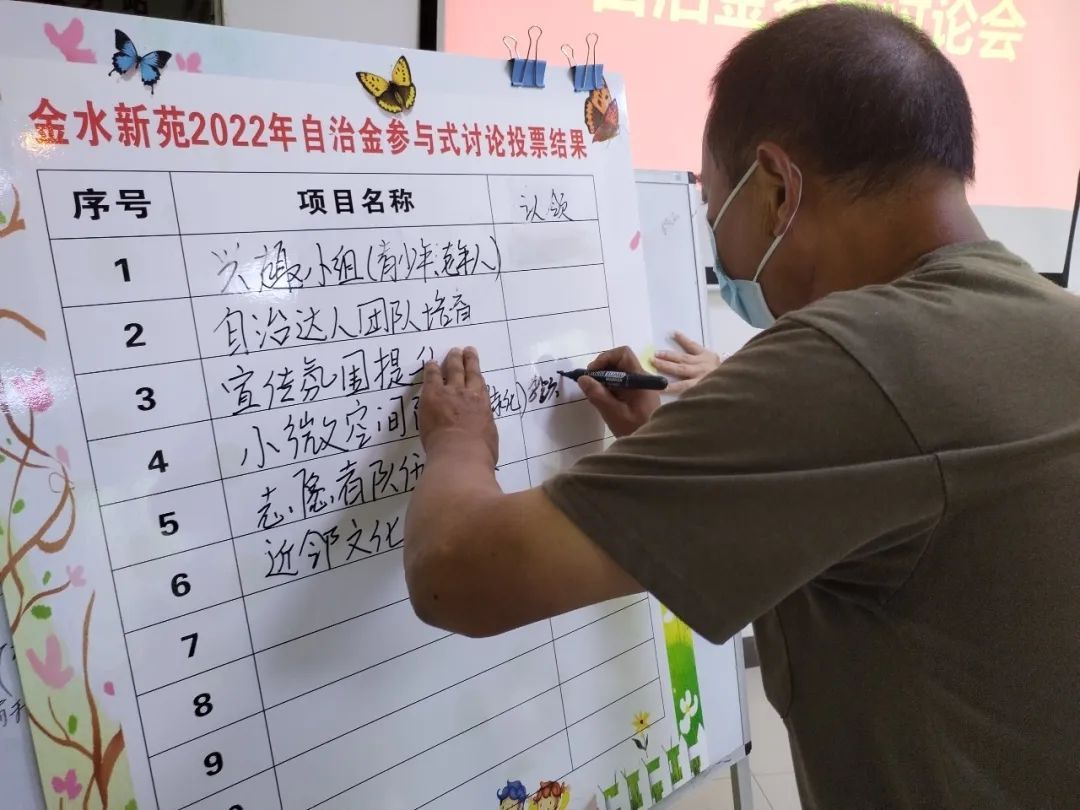 自治金参与式讨论会
金水新苑2022年自治金参与式讨论投票结果
序号 项目名称 认领
1 兴趣小组(青少年、老年人)
2 自治达人团队培育
3 宣传氛围提升
4 小微空间
5 志愿者队伍
6 近邻文化
7
8
9